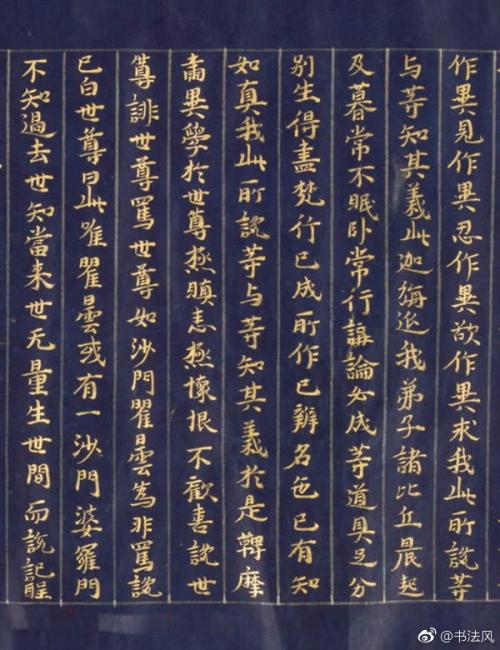 作異見作異忍作異欲作異求我此所說等
与等知其義此迦旃延我弟子諸比丘晨起
及暮常不眠卧常行講論如成等道具足分
別生得盡梵行已成所作已辦名色已有知
如真我此所說等与等知其義於是鞞摩
肅異學於世尊極瞋恚極懷恨不歡喜說世
尊誹世尊罵世尊如沙門瞿曇為非罵說
已白世尊曰此唯瞿曇或有一沙門婆羅門
不知過去世知當来世无量生世間而說記醒
@书法风